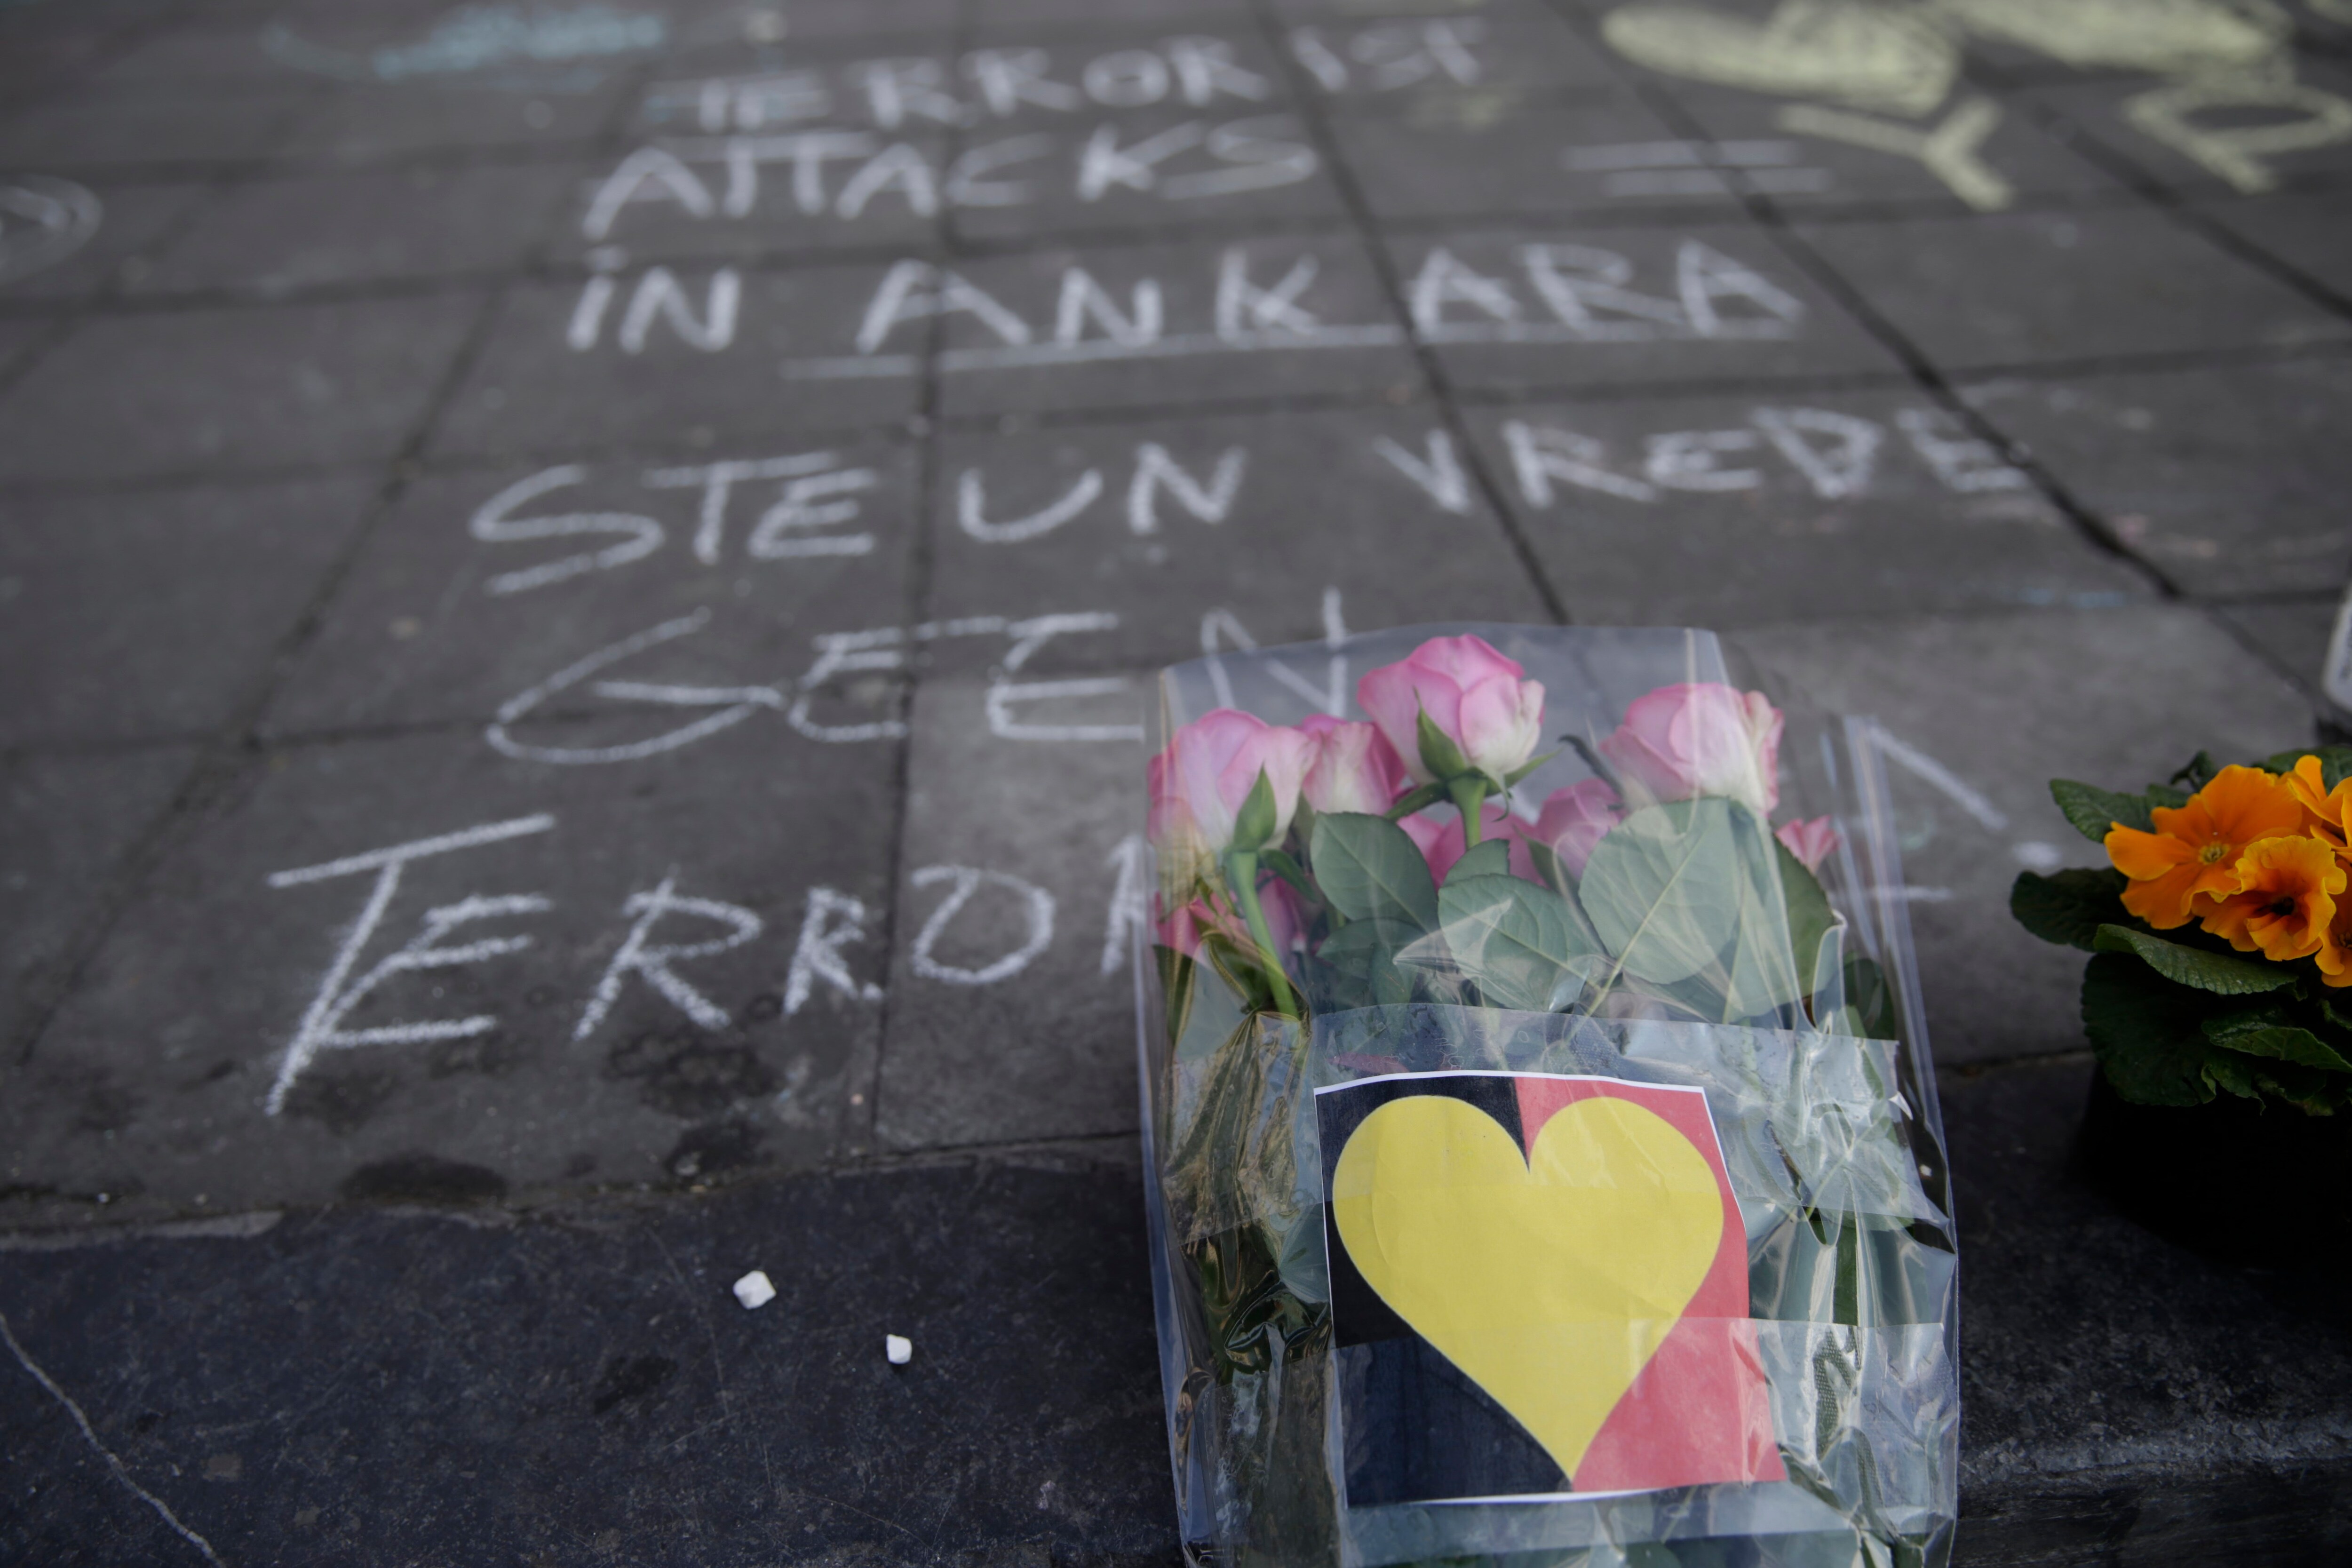 TERRORIST
ATTACKS =
iN ANKARA
STEUN VREDE
GEEN
TERROR